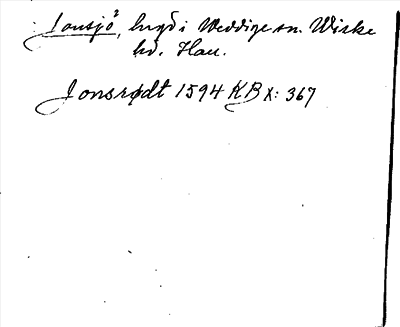 Jonsjö², bygd i Weddige sn. Wiske
hd. Hall.
Jonsrødt 1594 KB X: 367